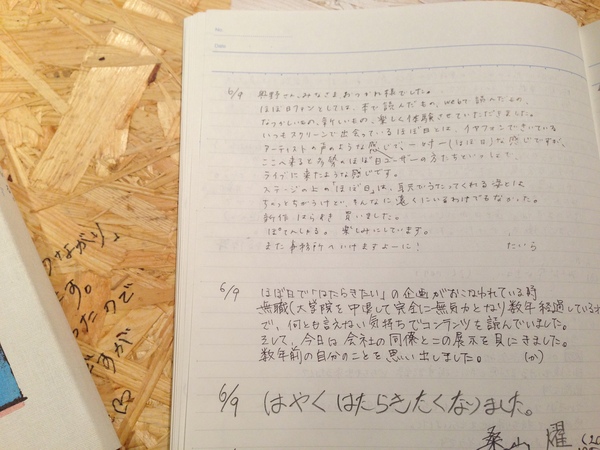 6/9 奥野さん、みなさまおつかれ様でした。
ほぼ日ファンとしては、本で読んだもの、webで読んだもの、
なつかしいもの、新しいもの、楽しく体験させていただきました。
いつもスクリーンで出会っているほぼ日とは、イヤフォンできいている
アーティストの声のような感じで、一対一(はほ日)な感じですが、
ここへ来ると多勢のほぼ日ユーザーの方たちといっしょで、
ライブに来たような感じです。
ステージの上の「ほぼ日」は、耳元でうたってくれる姿とは
ちょっとちがうけど、そんなに遠くにいるわけでもなかった。
新作 はらまき 買いました。
楽しみにしています。
また事務所へいけますように!
たいら
6/9 ほぼ日で「はたらきたい」の企画がおこなわれている時
無職(大学院を中退して完全に無気力となり数年経過している
で、何とも言えない気持ちでコンテンツを読んでいました。
そして、今日は会社の同僚とこの展示を見にきました。
数年前の自分のことを思い出しました。 (か)
6/9 はやくはたらきたくなりました。
桑山 燿
つながり、
です。
ったので
ですが